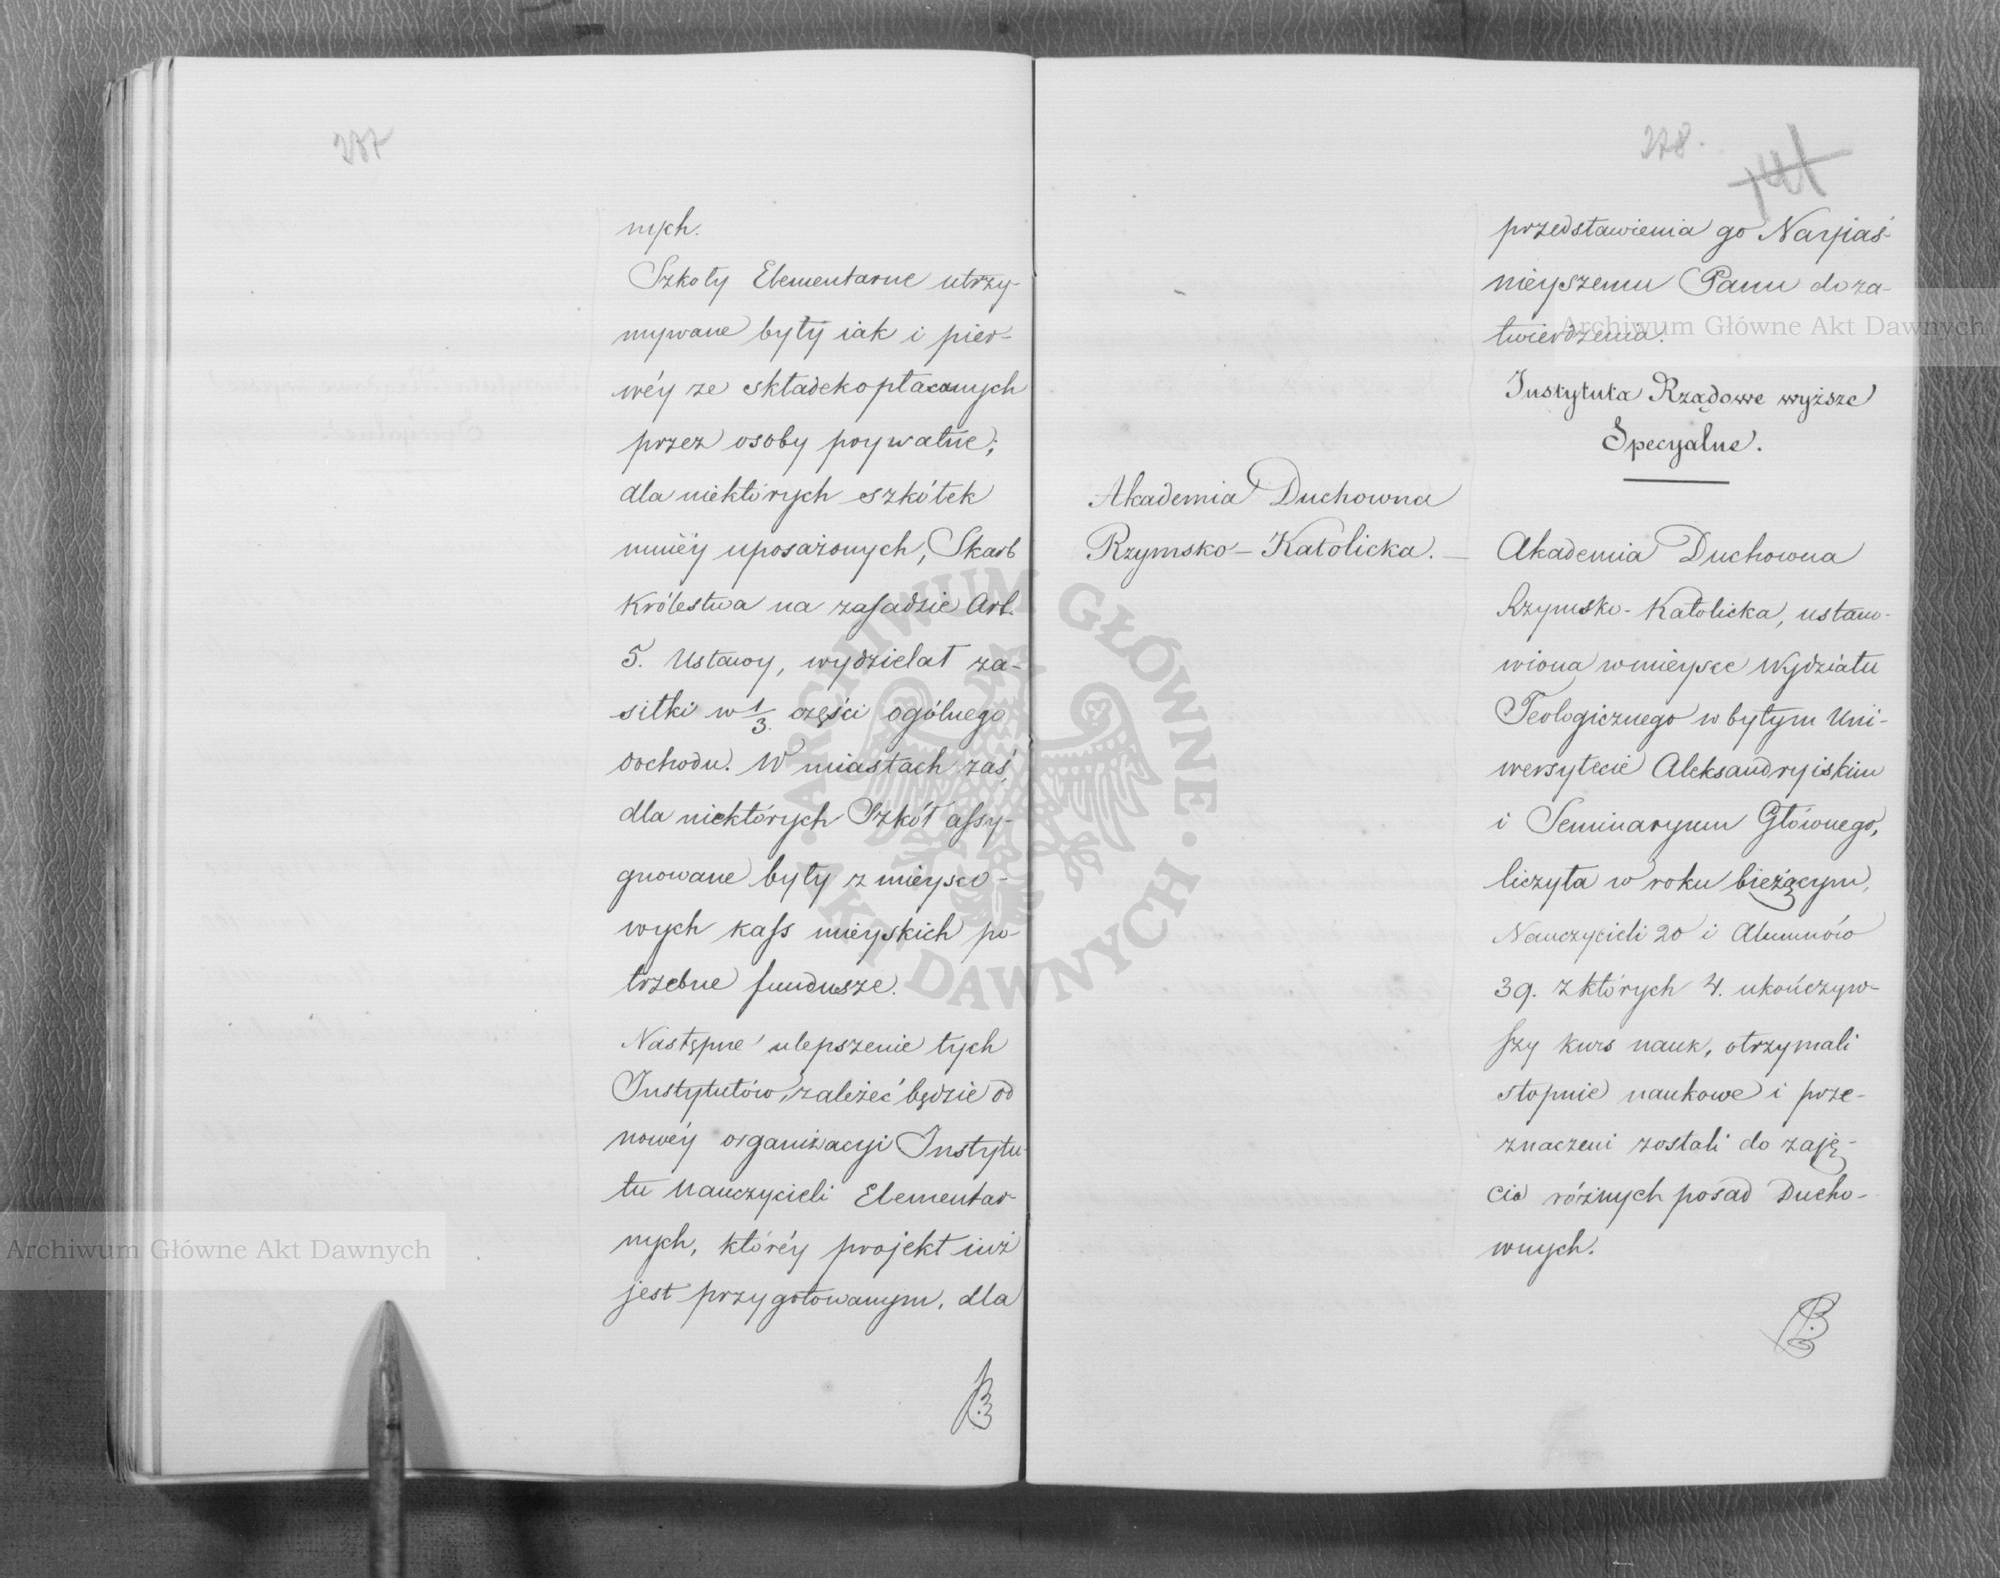 277
nych.
Szkoły Elementarne utrzy-
mywane były iak i pier-
wéy ze składek opłacanych
przez osoby prywatne;
dla niektórych szkółek
mniéy uposażonych, Skarb
Królestwa na zasadzie Art.
5. Ustawy, wydzielał za-
siłki w 1/3. części ogólnego
dochodu. W miastach zaś,
dla niektórych Szkół assy-
gnowane były z mieysco-
wych kass mieyskich po-
trzebne fundusze.
Następne ulepszenie tych
Instytutów, zależeć będzie od
nowéy organizacyi Instytu-
tu Nauczycieli Elementar-
nych, któréy projekt iuż
jest przygotowanym, dla
278.
przedstawienia go Nayjaś-
nieyszemu Panu do za-
twierdzenia.
Instytuta Rządowe wyższe
Specyalne.
Akademia Duchowna
Rzymsko-Katolicka. —
Akademia Duchowna
Rzymsko-Katolicka, ustano-
wiona w mieysce Wydziału
Teologicznego w byłym Uni-
wersytecie Aleksandryiskim
i Seminaryum Głównego,
liczyła w roku bieżącym,
Nauczycieli 20 i Alumnów
39. z których 4. ukończyw-
szy kurs nauk, otrzymali
stopnie naukowe i prze-
znaczeni zostali do zaję-
cia różnych posad Ducho-
wnych.
Archiwum Główne Akt Dawnych
Archiwum Główne Akt Dawnych
ARCHIWUM GŁÓWNE AKT DAWNYCH